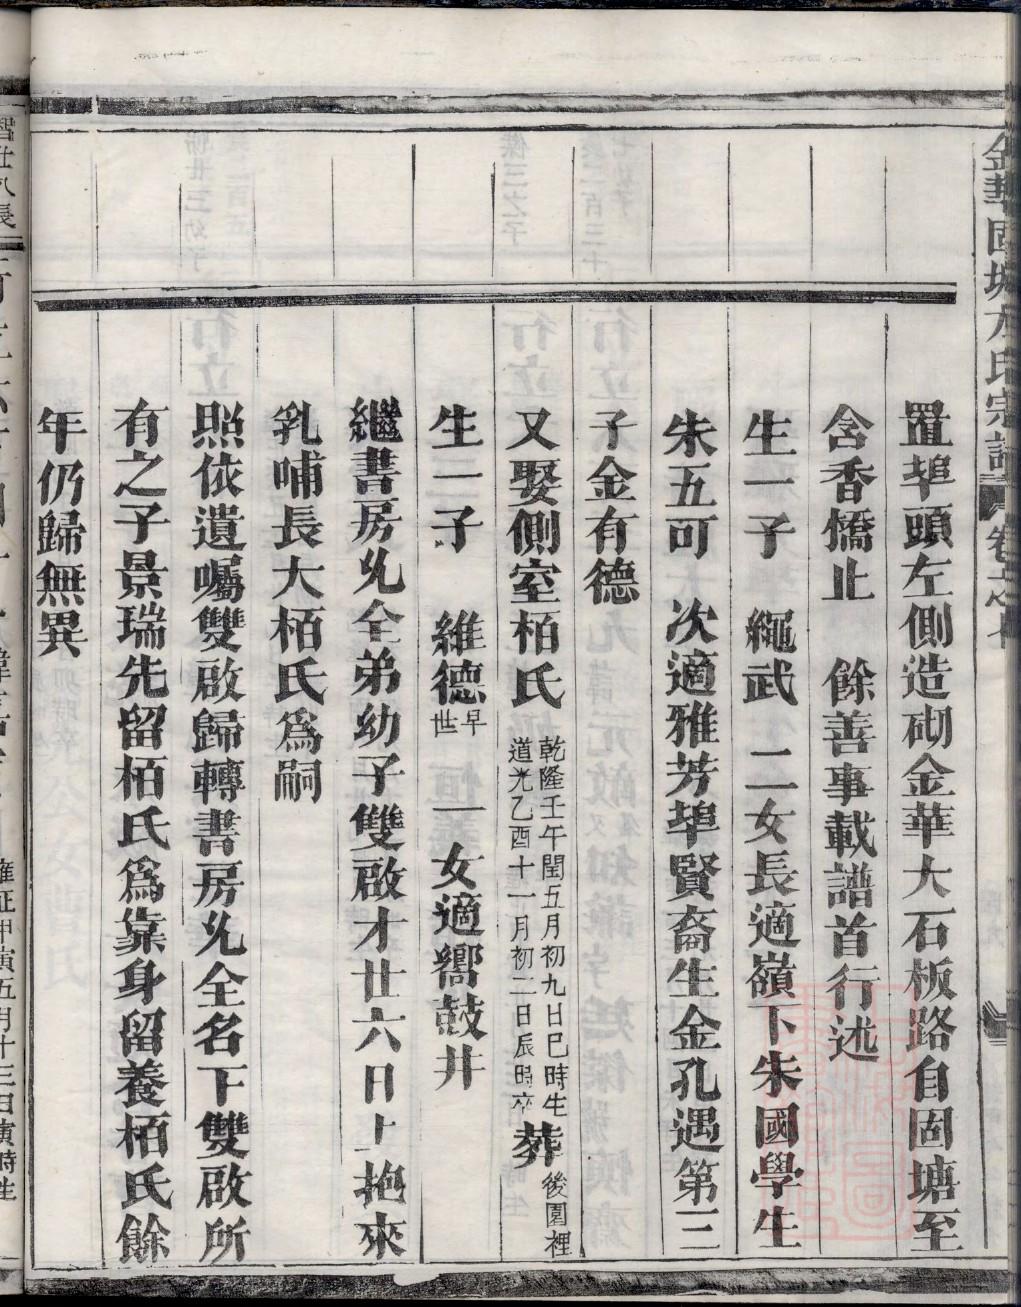 金華固塘方氏宗譜
置埠頭左側造砌金華大石板路自固塘至
含香憍止　餘善事載譜首行述
生一子　繩武　二女長適嶺下朱國學生
朱五可　次適雅芳埠賢裔生金孔遇第三
子金有德
又娶側室栢氏
乾隆壬午閏五月初九日巳時生
道光乙酉十一月初二日辰時卒
葬
後園裡
生二子　維德
早
世
一女適嚮鼓井
繼書房先全弟幼子雙啟才廿六日上抱來
乳哺長大栢氏爲嗣
照依遺囑雙啟歸轉書房先全名下雙啟所
有之子景瑞先留栢氏爲靠身留養栢氏餘
年仍歸無異
雍正甲寅五月十三日寅時生